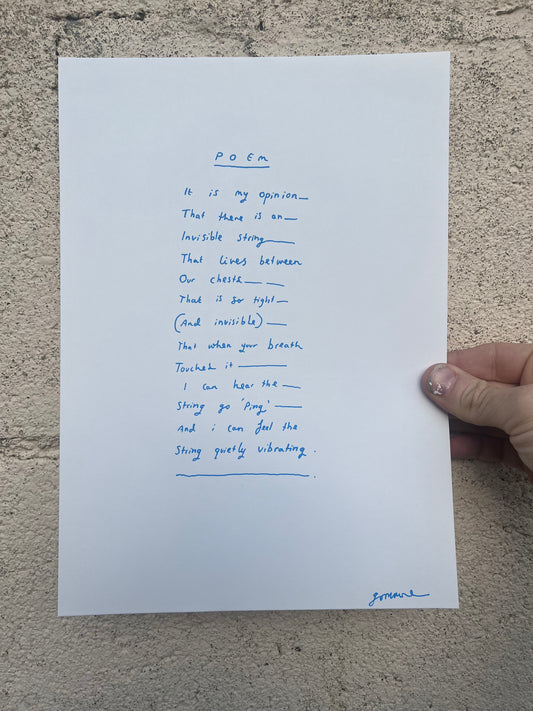 POEM
It is my opinion—
That there is an—
Invisible string—
That lives between
Our chests— —
That is so tight—
(And invisible)—
That when your breath
Touches it—
I can hear the—
String go 'Ping'—
And i can feel the
String quietly vibrating.